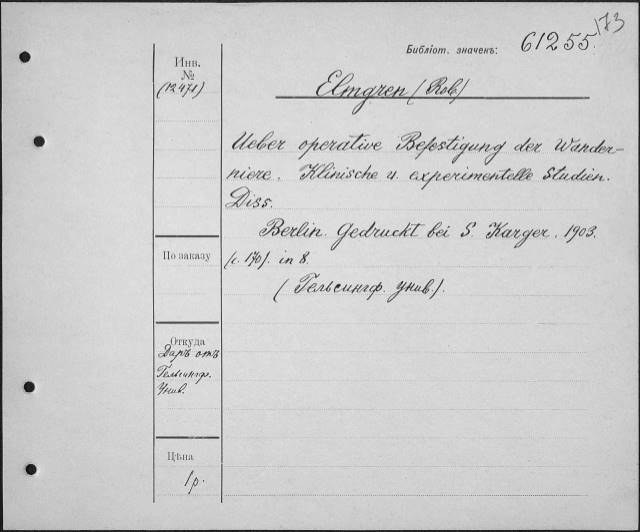 173
Библіот. значекъ: 61255.
Инв.
№
(12471)
Elmgren (Rob)
Ueber operative Befestigung der Wander-
niere. Klinische u. experimentelle Studien.
Diss.
Berlin. Gedruckt bei S. Karger. 1903.
По заказу
(с. 170). in 8.
(Гельсингф. унив.).
Откуда
Даръ отъ
Гельсингф.
Унив.
Цѣна
1 р.